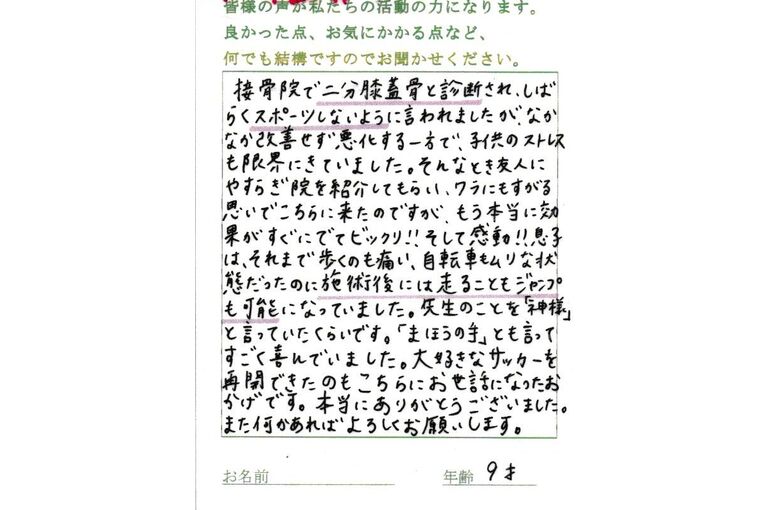 皆様の声が私たちの活動の力になります。
良かった点、お気にかかる点など、
何でも結構ですのでお聞かせください。
接骨院で二分膝蓋骨と診断され、しば
らくスポーツしないように言われましたが、なか
なか改善せず悪化する一方で、子供のストレス
も限界にきていました。そんなとき友人に
やすらぎ院を紹介してもらい、ワラにもすがる
思いでこちらに来たのですが、もう本当に効
果がすぐにでてビックリ!!そして感動!!息子
は、それまで歩くのも痛い、自転車もムリな状
態だったのに施術後には走ることもジャンプ
も可能になっていました。先生のことを「神様」
と言っていたくらいです。「まほうの手」とも言って
すごく喜んでいました。大好きなサッカーを
再開できたのもこちらにお世話になったお
かげです。本当にありがとうございました。
また何かあればよろしくお願いします。
お名前 年齢 9才